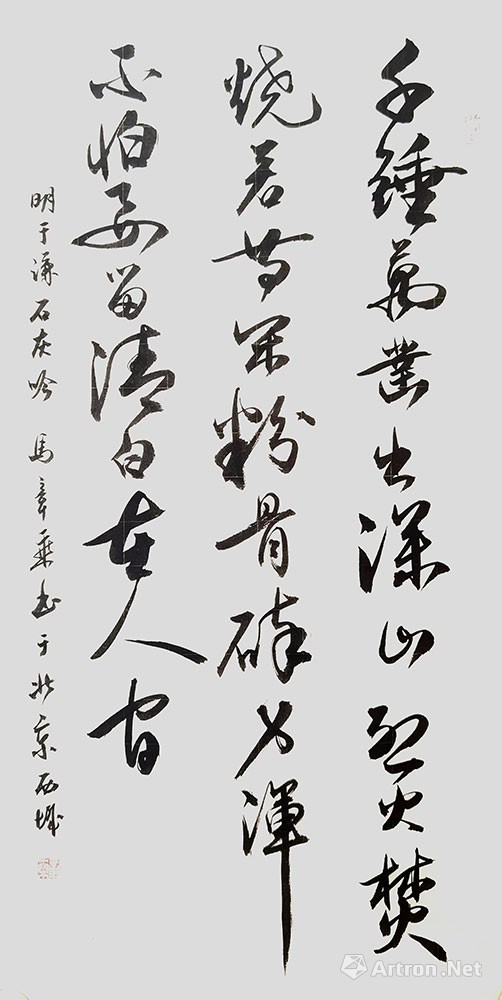 千錘萬鑿出深山烈火焚
烧若等闲粉骨碎身渾
不怕要留清白在人间
明于谦石灰吟 馬章乘书于北京西城
Artron.Net